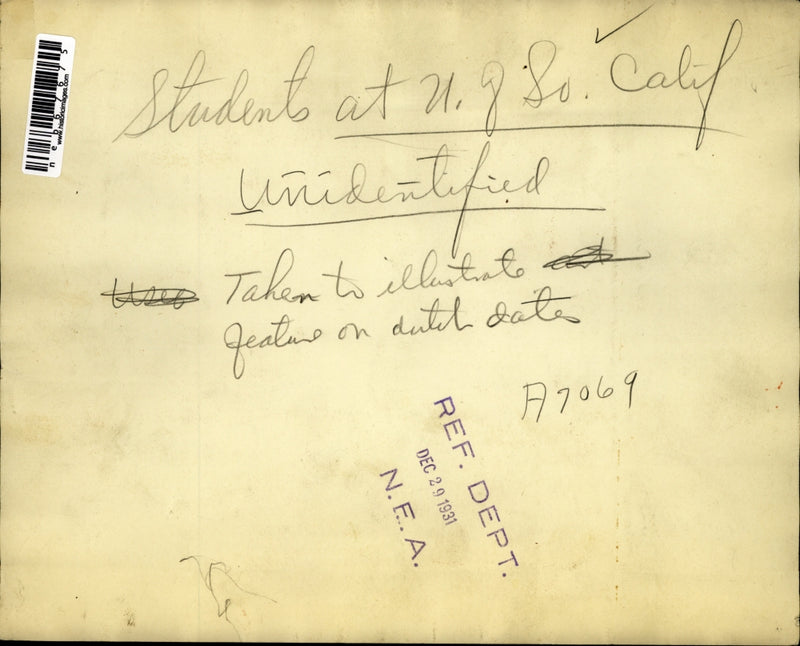 Students at U. of So. Calif
Unidentified
Taken to illustrate
feature on dutch dates
A7069
REF. DEPT.
DEC 29 1931
N.E.A.
www.historicimages.com